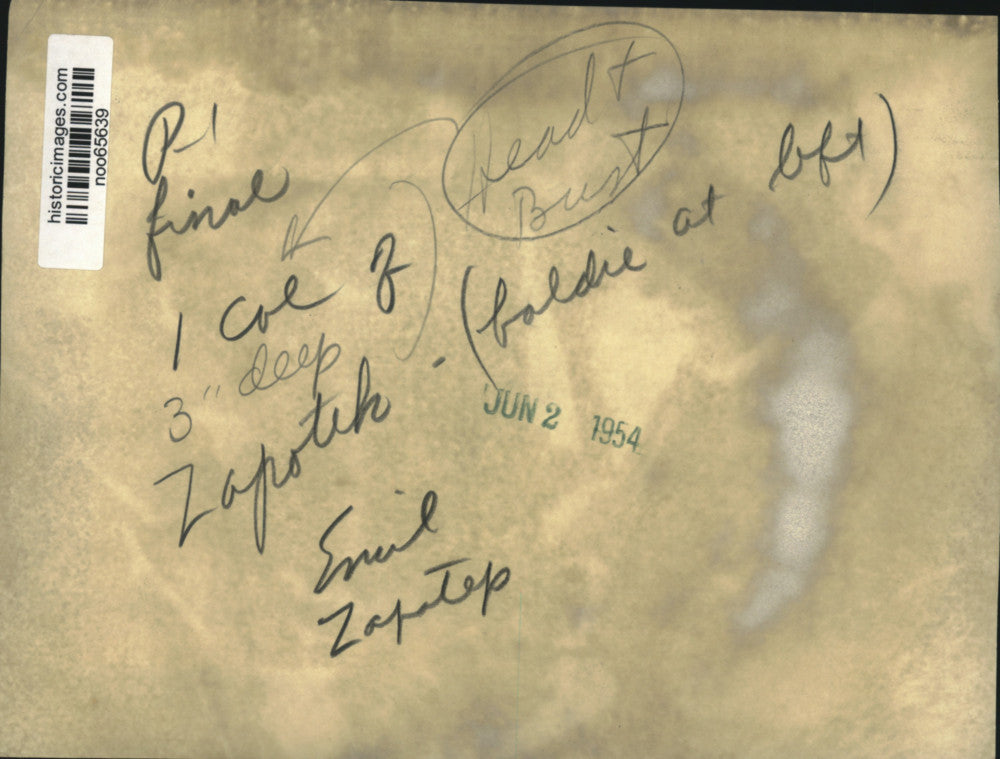 historicimages.com
noo65639
P-1
final
Head +
Bust
1 Col of
(baldie at left)
3" deep
Zapotek -
JUN 2 1954
Emil
Zapotep